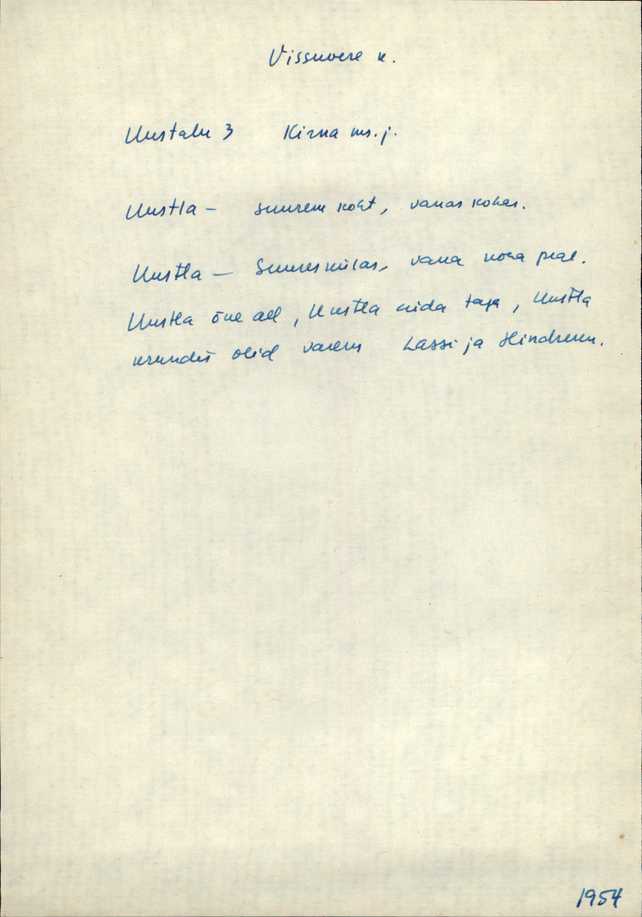 Vissuvere k.
Uustalu 3 Kirna ms. j.
Uustla — suurem koht, vanas kohas.
Uustla — Suureskülas, vana koha peal.
Uustla õue all, Uustla niidu taga, Uustla
krundis olid varem Lassi ja Hindreku.
1954